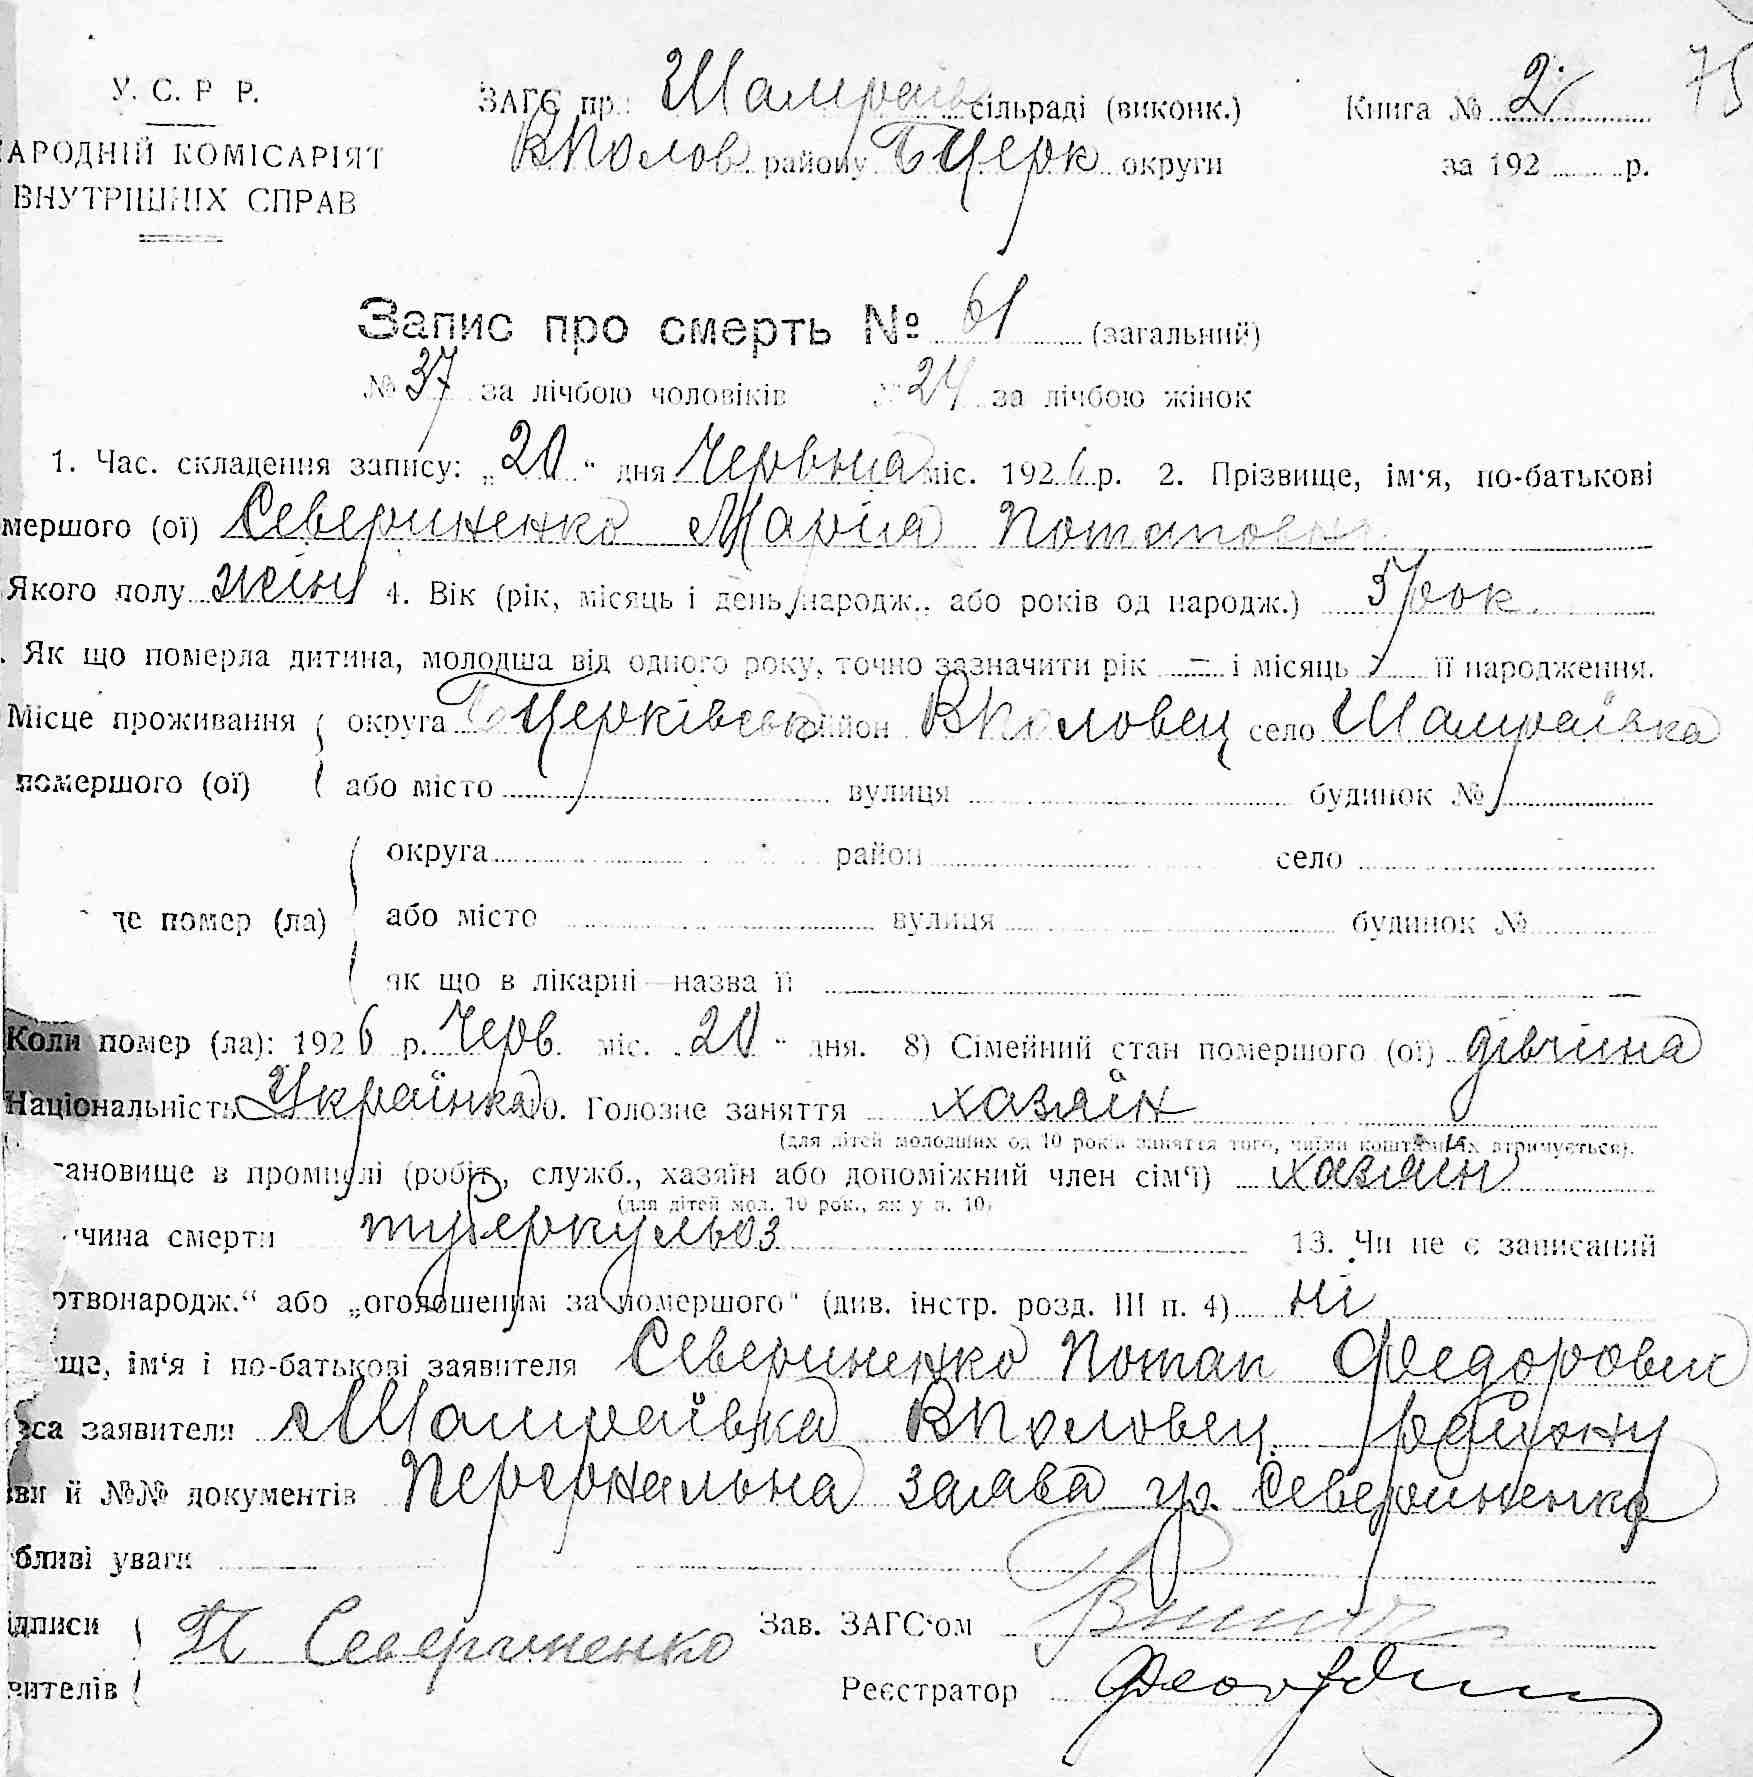 75
У. С. Р Р.
НАРОДНІЙ КОМІСАРІЯТ
ВНУТРІШНІХ СПРАВ
ЗАГС пр. Шамраїв сільраді (виконк.)
ВПолов району БЦерк округи
Книга № 2
за 192 р.
Запис про смерть № 61 (загальний)
№ 37 за лічбою чоловіків № 24 за лічбою жінок
1. Час. складення запису: „20“ дня Червня міс. 1926 р. 2. Прізвище, ім'я, по-батькові
мершого (ої) Севериненко Марія Потаповна
Якого полу жін 4. Вік (рік, місяць і день народж., або років од народж.) рок.
Як що померла дитина, молодша від одного року, точно зазначити рік – і місяць її народження.
Місце проживання округа БЦерківськ район ВПоловец село Шамраївка
помершого (ої) або місто вулиця будинок №
округа район село
де помер (ла) або місто вулиця будинок №
як що в лікарні—назва її
Коли помер (ла): 1926 р. Черв міс. „20“ дня. 8) Сімейний стан помершого (ої) дівчина
Національність Українка 10. Головне заняття хазяїн
(для дітей молодших од 10 років заняття того, чиїми коштами їх втримується).
ановище в промислі (робіт., служб., хазяїн або допоміжний член сім'ї) хазяїн
(для дітей мол. 10 рок., як у п. 10)
чина смерти туберкульоз 13. Чи не є записаний
ртвонародж.“ або „оголошеним за помершого“ (див. інстр. розд. III п. 4) ні
ще, ім'я і по-батькові заявителя Севериненко Потап Федорович
еса заявителя Шамраївка ВПоловец. району
ви й №№ документів Персональна заява гр. Севериненко
бливі уваги
ідписи П Севериненко Зав. ЗАГС'ом
вителів Реєстратор